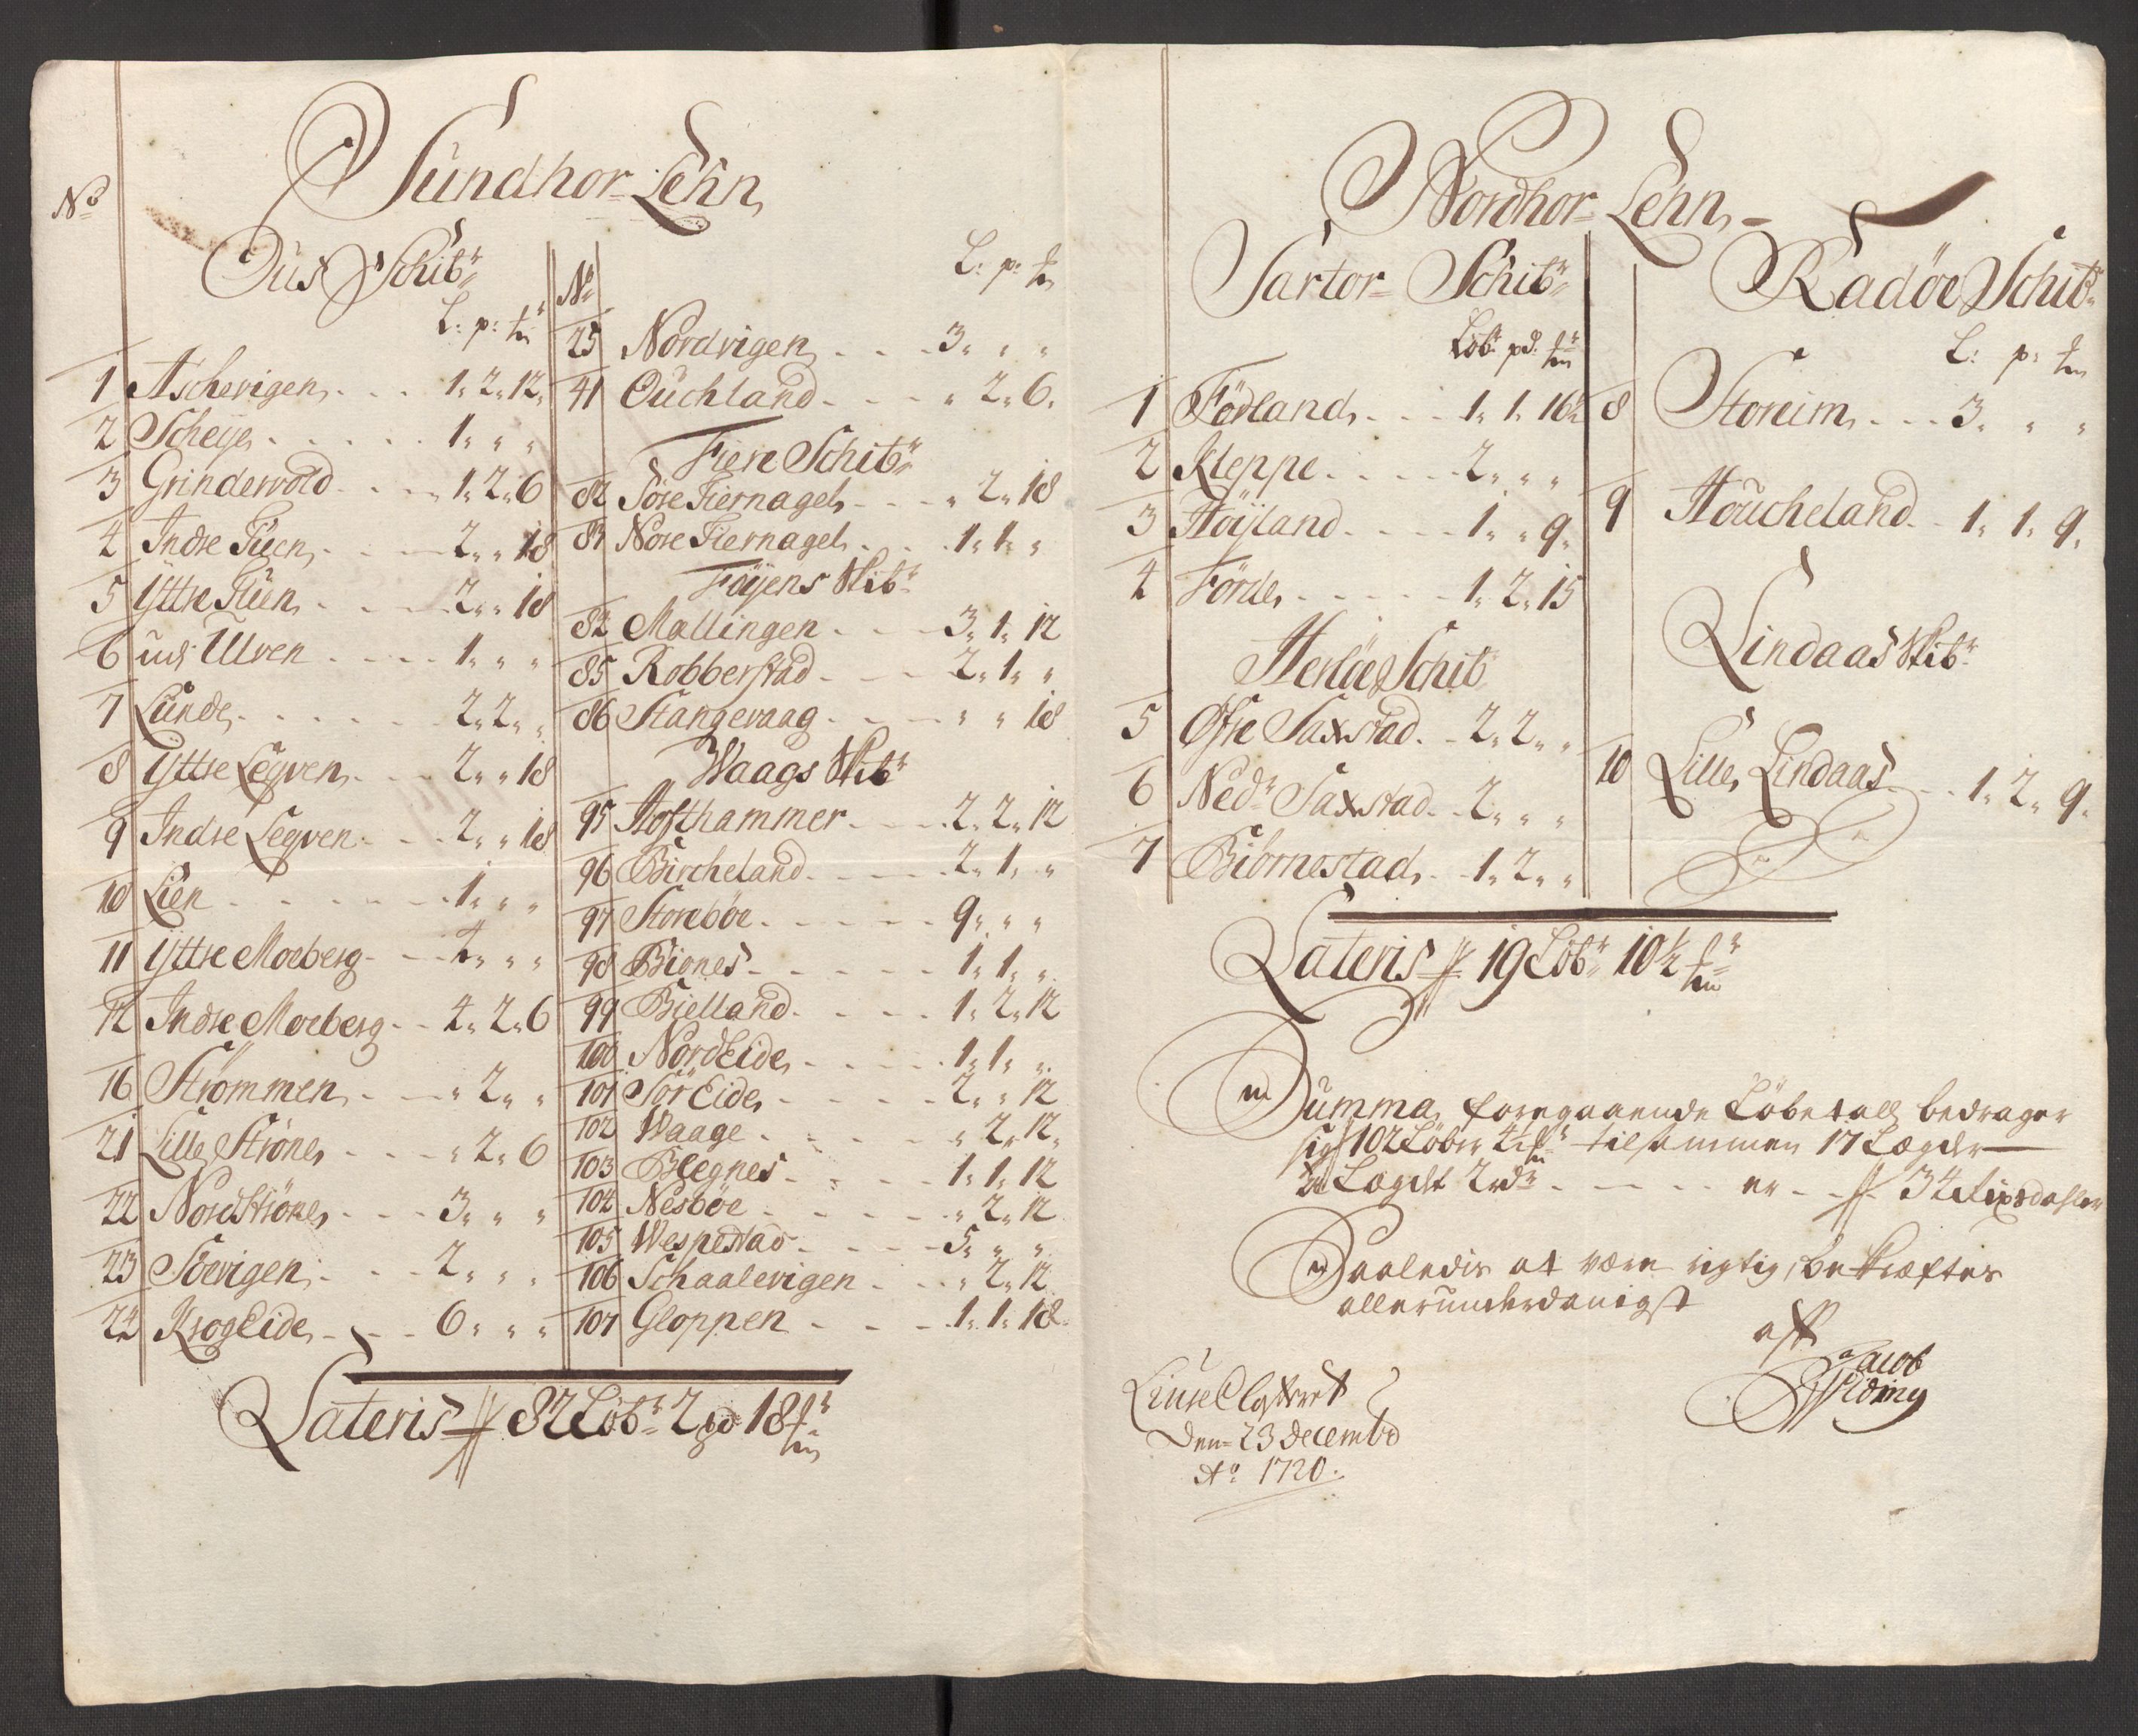 Sundhor Lehn
No
Ous Schibr
L: p: mr
1 Aschevigen . . . 1. 2. 12.
2 Scheije . . . . . 1. " "
3 Grindevold . . . 1. 2. 6
4 Indre Tüen . . . 2. " 18
5 Ÿttre Tüen . . . 2. " 18
6 udj Ulven . . . . 1. " "
7 Lunde . . . . . 2. 2. "
8 Ÿttre Legven . . . 2. " 18
9 Indre Legven . . . 2. " 18
10 Lien . . . . . 1. " "
11 Ÿttre Moeberg . . 4. " "
12 Indre Moeberg . . 4. 2. 6
16 Strömmen . . . " 2. "
21 Lille Ströne . . . " 2. 6
22 Nordströne . . . 3. " "
23 Söevigen . . . 2. " "
24 KrogEide . . . 6. " "
No
L: p: mr
25 Nordvigen . . . 3. " "
41 Ouchland . . . " 2. 6.
Fiere Schibr
82 Söre Fiernagel . . . " 2. 18
83 Nore Fiernagel . . . 1. 1. "
Föÿens Skibr
84 Mællingen . . . 3. 1. 12
85 Robberstad . . . 2. 1. "
86 Stangevaag . . . " " 18
Waags Skibr
95 Hofthammer . . . 2. 2. 12
96 Bircheland . . . 2. 1. "
97 Storeböe . . . . 9. " "
98 Biones . . . . . 1. 1. "
99 Bielland . . . . 1. 2. 12
100 NordEide . . . . 1. 1. "
101 SörEide . . . . 2. " 12
102 Waage . . . . " 2. 12.
103 Blegnes . . . . 1. 1. 12
104 Nesböe . . . . " 2. 12
105 Wespestad . . . . 5. " "
106 Schaalevigen . . . " 2. 12
107 Gloppen . . . 1. 1. 18.
Lateris 82 Löbr 2 pd 18 mr
Nordhor Lehn
Sartor Schibr
Löbr pd: mr
1 Födland . . . 1. 1. 16½
2 Kleppe . . . . 2. " "
3 Höijland . . . . 1. " 9.
4 Förde . . . . . 1. 2. 15
Herlöe Schib
5 Øfre Saxstad . . 2. 2. "
6 Nedr Saxstad . . 2. " "
7 Biörnestad . . 1. 2. "
Radöe Schibr
L: p: mr
8 Storeim . . . 3. " "
9 Höucheland . . 1. 1. 9.
Lindaas Skibr
10 Lille Lindaas . . . 1. 2. 9.
Lateris 19 Löbr 10½ mr
Summa foregaaende Löbetall bedrager
sig 102 Löber 4½ mr tilsammen 17 Lægder
a Lægdt 2 rdr . . . . er . . 34 Rixsdahler
Saaledis at være rigtig, bekræfter
allerunderdanigst
aff
Jacob
Widing
Liuse Closteret
Den 23 Decembr
Ao 1720.